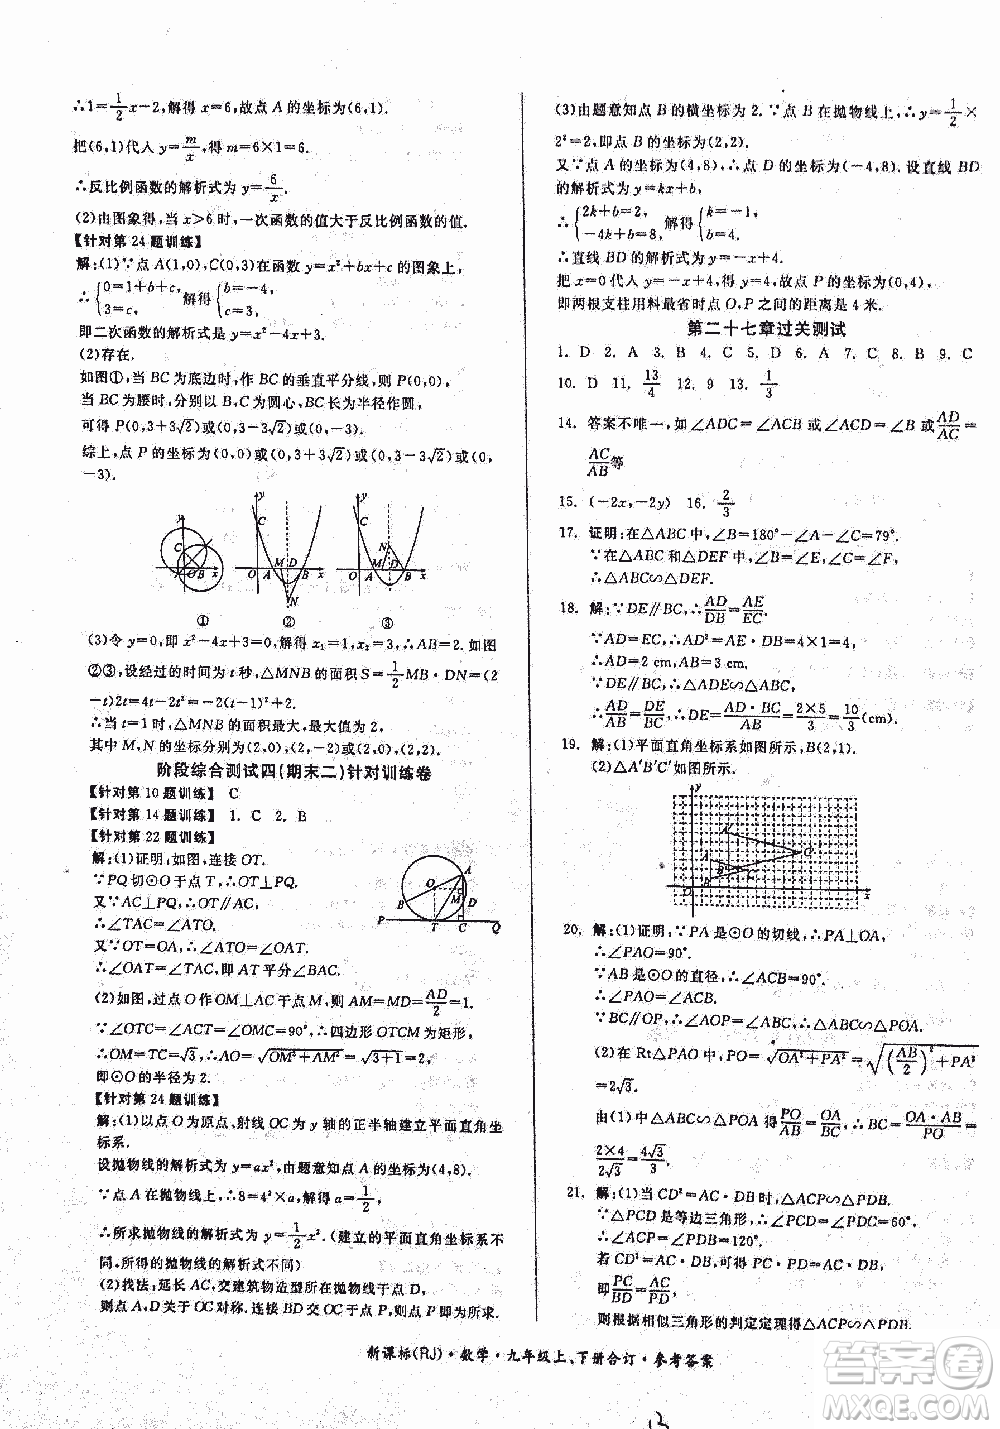 ∴1=1/2x-2,解得 x=6,故点 A 的坐标为(6,1).
把(6,1)代入 y=m/x,得 m=6×1=6.
∴反比例函数的解析式为 y=6/x.
(2)由图象得,当 x>6 时,一次函数的值大于反比例函数的值.
【针对第 24 题训练】
解:(1)∵点 A(1,0),C(0,3)在函数 y=x²+bx+c 的图象上,
∴{0=1+b+c, 3=c, 解得{b=-4, c=3,
即二次函数的解析式是 y=x²-4x+3.
(2)存在.
如图①,当 BC 为底边时,作 BC 的垂直平分线,则 P(0,0);
当 BC 为腰时,分别以 B,C 为圆心,BC 长为半径作圆,
可得 P(0,3+3√2)或(0,3-3√2)或(0,-3).
综上,点 P 的坐标为(0,0)或(0,3+3√2)或(0,3-3√2)或(0,
-3).
y C O B x
y C O A M D B x N
y C N O A M D B x
① ② ③
(3)令 y=0,即 x²-4x+3=0,解得 x₁=1,x₂=3,∴AB=2. 如图
②③,设经过的时间为 t 秒,△MNB 的面积 S=1/2MB·DN=(2
-t)2t=4t-2t²=-2(t-1)²+2.
∴当 t=1 时,△MNB 的面积最大,最大值为 2.
其中 M,N 的坐标分别为(2,0),(2,-2)或(2,0),(2,2).
阶段综合测试四(期末二)针对训练卷
【针对第 10 题训练】 C
【针对第 14 题训练】 1. C 2. B
【针对第 22 题训练】
解:(1)证明,如图,连接 OT.
∵PQ 切⊙O 于点 T,∴OT⊥PQ.
又∵AC⊥PQ,∴OT∥AC,
∴∠TAC=∠ATO.
又∵OT=OA,∴∠ATO=∠OAT.
∴∠OAT=∠TAC,即 AT 平分∠BAC.
O A B M D P T C Q
(2)如图,过点 O 作 OM⊥AC 于点 M,则 AM=MD=AD/2=1.
∵∠OTC=∠ACT=∠OMC=90°,∴四边形 OTCM 为矩形,
∴OM=TC=√3,∴AO=√(OM²+AM²)=√(3+1)=2.
即⊙O 的半径为 2.
【针对第 24 题训练】
解:(1)以点 O 为原点,射线 OC 为 y 轴的正半轴建立平面直角坐
标系.
设抛物线的解析式为 y=ax²,由题意知点 A 的坐标为(4,8).
∵点 A 在抛物线上,∴8=4²×a,解得 a=1/2,
∴所求抛物线的解析式为 y=1/2x².(建立的平面直角坐标系不
同,所得抛物线的解析式不同)
(2)找法:延长 AC,交建筑物造型所在抛物线于点 D,
则点 A,D 关于 OC 对称.连接 BD 交 OC 于点 P,则点 P 即为所求.
(3)由题意知点 B 的横坐标为 2.∵点 B 在抛物线上,∴y=1/2×
2²=2,即点 B 的坐标为(2,2).
又∵点 A 的坐标为(4,8),∴点 D 的坐标为(-4,8).设直线 BD
的解析式为 y=kx+b,
∴{2k+b=2, -4k+b=8, ∴{k=-1, b=4,
∴直线 BD 的解析式为 y=-x+4.
把 x=0 代入 y=-x+4,得 y=4,故点 P 的坐标为(0,4),
即两根支柱用料最省时点 O,P 之间的距离是 4 米.
第二十七章过关测试
1. D 2. A 3. B 4. C 5. D 6. D 7. B 8. B 9. C
10. D 11. 13/4 12. 9 13. 1/3
14. 答案不唯一,如∠ADC=∠ACB 或∠ACD=∠B 或AD/AC=
AC/AB等
15. (-2x,-2y) 16. 2/3
17. 证明:在△ABC 中,∠B=180°-∠A-∠C=79°.
∵在△ABC 和△DEF 中,∠B=∠E,∠C=∠F,
∴△ABC∽△DEF.
18. 解:∵DE∥BC,∴AD/DB=AE/EC.
∵AD=EC,∴AD²=AE·DB=4×1=4,
∴AD=2 cm,AB=3 cm.
∵DE∥BC,∴△ADE∽△ABC,
∴AD/AB=DE/BC,∴DE=AD·BC/AB=2×5/3=10/3(cm).
19. 解:(1)平面直角坐标系如图所示,B(2,1).
(2)△A′B′C′如图所示.
20. 解:(1)证明,∵PA 是⊙O 的切线,∴PA⊥OA,
∴∠PAO=90°.
∵AB 是⊙O 的直径,∴∠ACB=90°.
∴∠PAO=∠ACB.
∵BC∥OP,∴∠AOP=∠B,∴△ABC∽△POA.
(2)在 Rt△PAO 中,PO=√(OA²+PA²)=√((AB/2)²+PA²)
=2√3.
由(1)中△ABC∽△POA 得PO/AB=OA/BC,∴BC=OA·AB/PO=
2×4/2√3=4√3/3.
21. 解:(1)当 CD²=AC·DB 时,△ACP∽△PDB.
∵△PCD 是等边三角形,∴∠PCD=∠PDC=60°,
∴∠ACP=∠PDB=120°.
若 CD²=AC·DB,由 PC=PD=CD 可得 PC·PD=AC·DB,
即PC/BD=AC/PD,
则根据相似三角形的判定定理得△ACP∽△PDB.
新课标(RJ)·数学·九年级上、下册合订·参考答案
13
答案圈
MXQE.COM